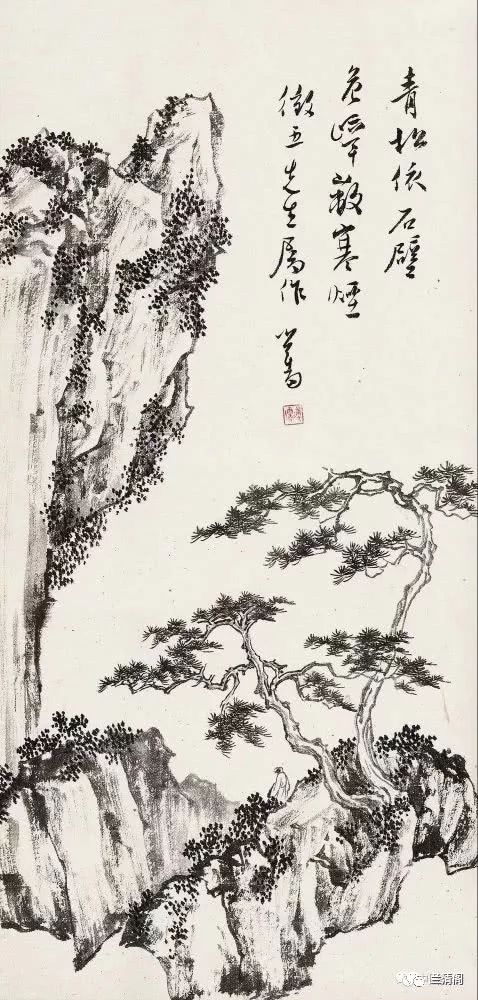 青松依石壁
危峰散寒煙
徵五先生屬作 心畬
清閣